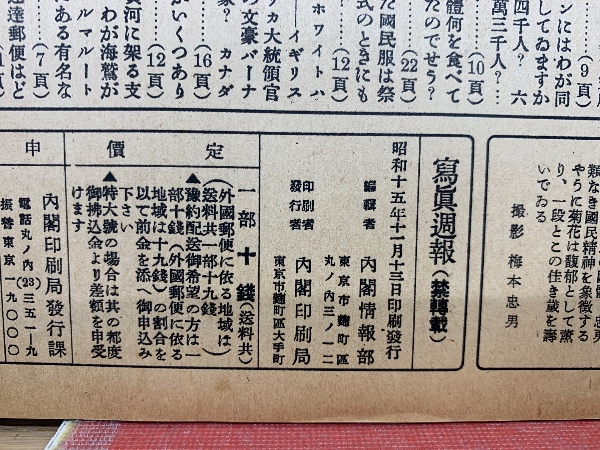 ンにはわが同
してゐますか
四千人？ 六
萬三千人？…
(9頁)
體何を食べて
たのでせう？
(10頁)
た國民服は祭
式のときにも
(22頁)
ホワイトハ
(12頁)
―イギリス
リカ大統領官
の文豪バーナ
家？ カナダ
(16頁)
がいくつあり
(12頁)
黄河に架る支
わが海鷲が
ルマルート
にある有名な
(7頁)
達郵便はど
類なき國民精神を象徴する
やうに菊花は馥郁として薫
り、一段とこの佳き歳を壽
いでゐる
撮影 梅本忠男
寫眞週報(禁轉載)
昭和十五年十一月十三日印刷發行
編輯者 內閣情報部
東京市麴町區
丸ノ內三ノ一二
印刷者
發行者 內閣印刷局
東京市麴町區大手町
定價
一部十錢(送料共)
(外國郵便に依る地域は
送料共一部十九錢)
▲豫約配送御希望の方は一
部十錢(外國郵便に依る
地域は十九錢)の割合を
以て前金を添へ御申込み
下さい
▲特大號の場合は其の都度
御拂込金より差額を申受
けます
申
內閣印刷局發行課
電話丸ノ內(23)三五一―九
振替東京一九〇〇〇